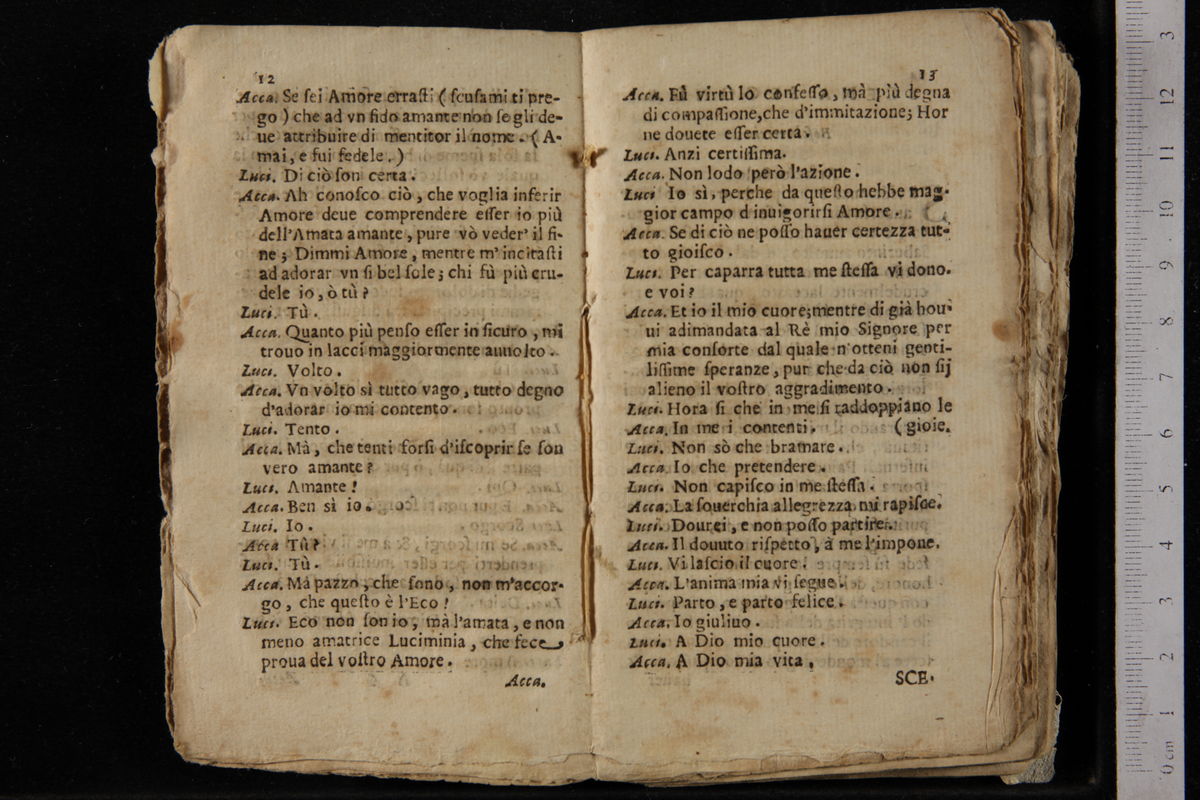 12
Acca. Se ſei Amore erraſti ( ſcuſami ti pre-
go ) che ad vn fido amante non ſe gli de-
ue attribuire di mentitor il nome. ( A-
mai, e fui fedele. )
Luci. Di ciò ſon certa.
Acca. Ah conoſco ciò, che voglia inferir
Amore deue comprendere eſſer io più
dell'Amata amante, pure vò veder' il fi-
ne; Dimmi Amore, mentre m'incitaſti
ad adorar vn ſi bel ſole; chi fù più cru-
dele io, ò tù?
Luci. Tù.
Acca. Quanto più penſo eſſer in ſicuro, mi
trouo in lacci maggiormente auuolto.
Luci. Volto.
Acca. Vn volto sì tutto vago, tutto degno
d'adorar io mi contento.
Luci. Tento.
Acca. Mà, che tenti forſi d'iſcoprir ſe ſon
vero amante?
Luci. Amante!
Acca. Ben sì io.
Luci. Io.
Acca Tù?
Luci. Tù.
Acca. Mà pazzo, che ſono, non m'accor-
go, che queſto è l'Eco!
Luci. Eco non ſon io, mà l'amata, e non
meno amatrice Luciminia, che fece
proua del voſtro Amore.
Acca.
13
Acca. Fù virtù lo confeſſo, mà più degna
di compaſſione, che d'immitazione; Hor
ne douete eſſer certa.
Luci. Anzi certiſſima.
Acca. Non lodo però l'azione.
Luci Io sì, perche da queſto hebbe mag-
gior campo d inuigorirſi Amore.
Acca. Se di ciò ne poſſo hauer certezza tut-
to gioiſco.
Luci. Per caparra tutta me ſteſſa vi dono.
e voi?
Acca. Et io il mio cuore; mentre di già hou-
ui adimandata al Rè mio Signore per
mia conſorte dal quale n'otteni genti-
liſſime ſperanze, pur che da ciò non ſij
alieno il voſtro aggradimento.
Luci. Hora ſi che in me ſi raddoppiano le
Acca. In me i contenti. ( gioie.
Luci. Non sò che bramare.
Acca. Io che pretendere.
Luci. Non capiſco in me ſteſſa.
Acca. La ſouerchia allegrezza mi rapiſce.
Luci. Dourei, e non poſſo partire.
Acca. Il douuto riſpetto, à me l'impone.
Luci. Vi laſcio il cuore.
Acca. L'anima mia vi ſegue.
Luci. Parto, e parto felice.
Acca. Io giuliuo.
Luci. A Dio mio cuore.
Acca. A Dio mia vita.
SCE-
0 cm 1 2 3 4 5 6 7 8 9 10 11 12 3